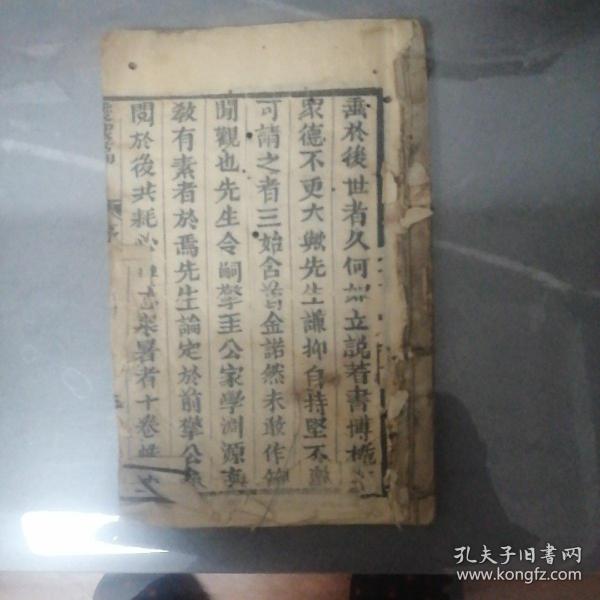 垂於後世者久何如立說著書博
眾德不更大歟先生謙抑自持堅不
可請之者三始含首金諾然未敢作
聞觀也先生令嗣擎玉公家學淵源
教有素者於焉先生論定於前擎公
閱於後共耗心寒暑者十卷
序
孔夫子旧书网
www.kongfz.com